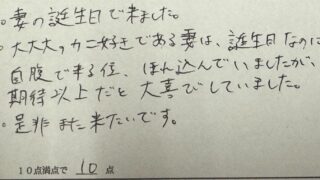 。妻の誕生日で来ました。
・大大大ッカニ好きである妻は、誕生日なのに
自腹で来る位、ほれ込んでいましたが、
期待以上だと大喜びしていました。
・是非また来たいです。
10点満点で 10 点